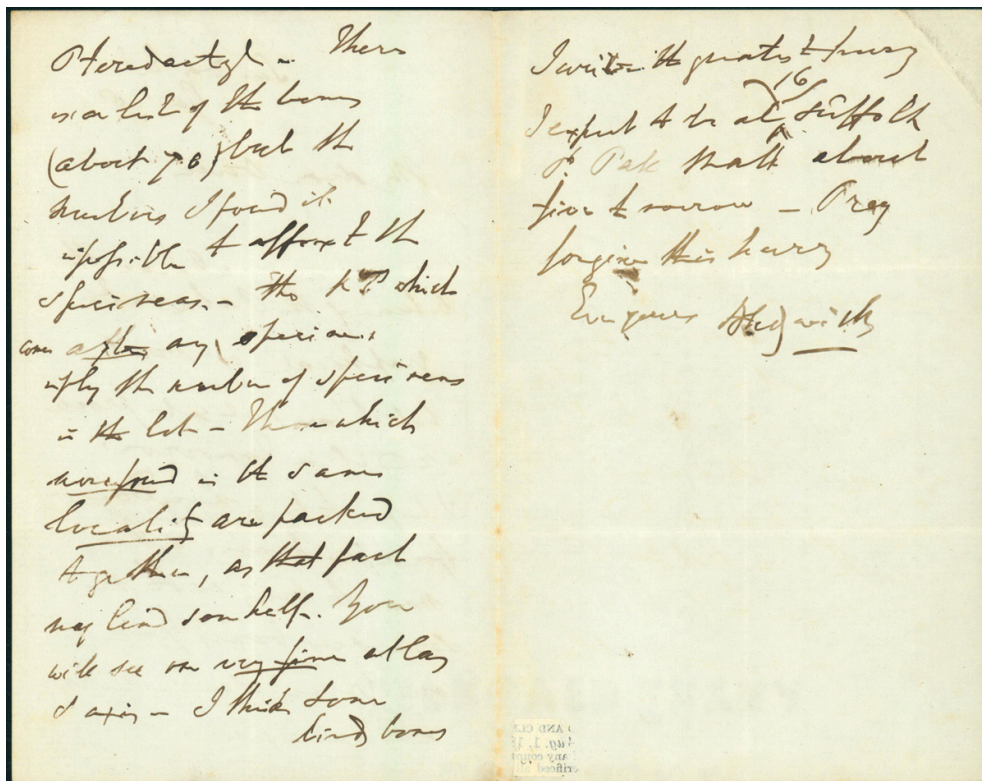 Pterodactyl – There
is a list of the bones
(about 70) but the
numbers I found it
impossible to affix to the
specimens – the No which
comes after any specimen
imply the number of specimens
in the lot – Those which
were found in the same
locality are packed
together, as that fact
may lend some help. You
will see one very fine atlas
& axis – I think some
bones
I write in the greatest hurry
I expect to be at 16 Suffolk
St. Pall Mall about
five tomorrow – Pray
forgive this hurry
Ever yours A Sedgwick